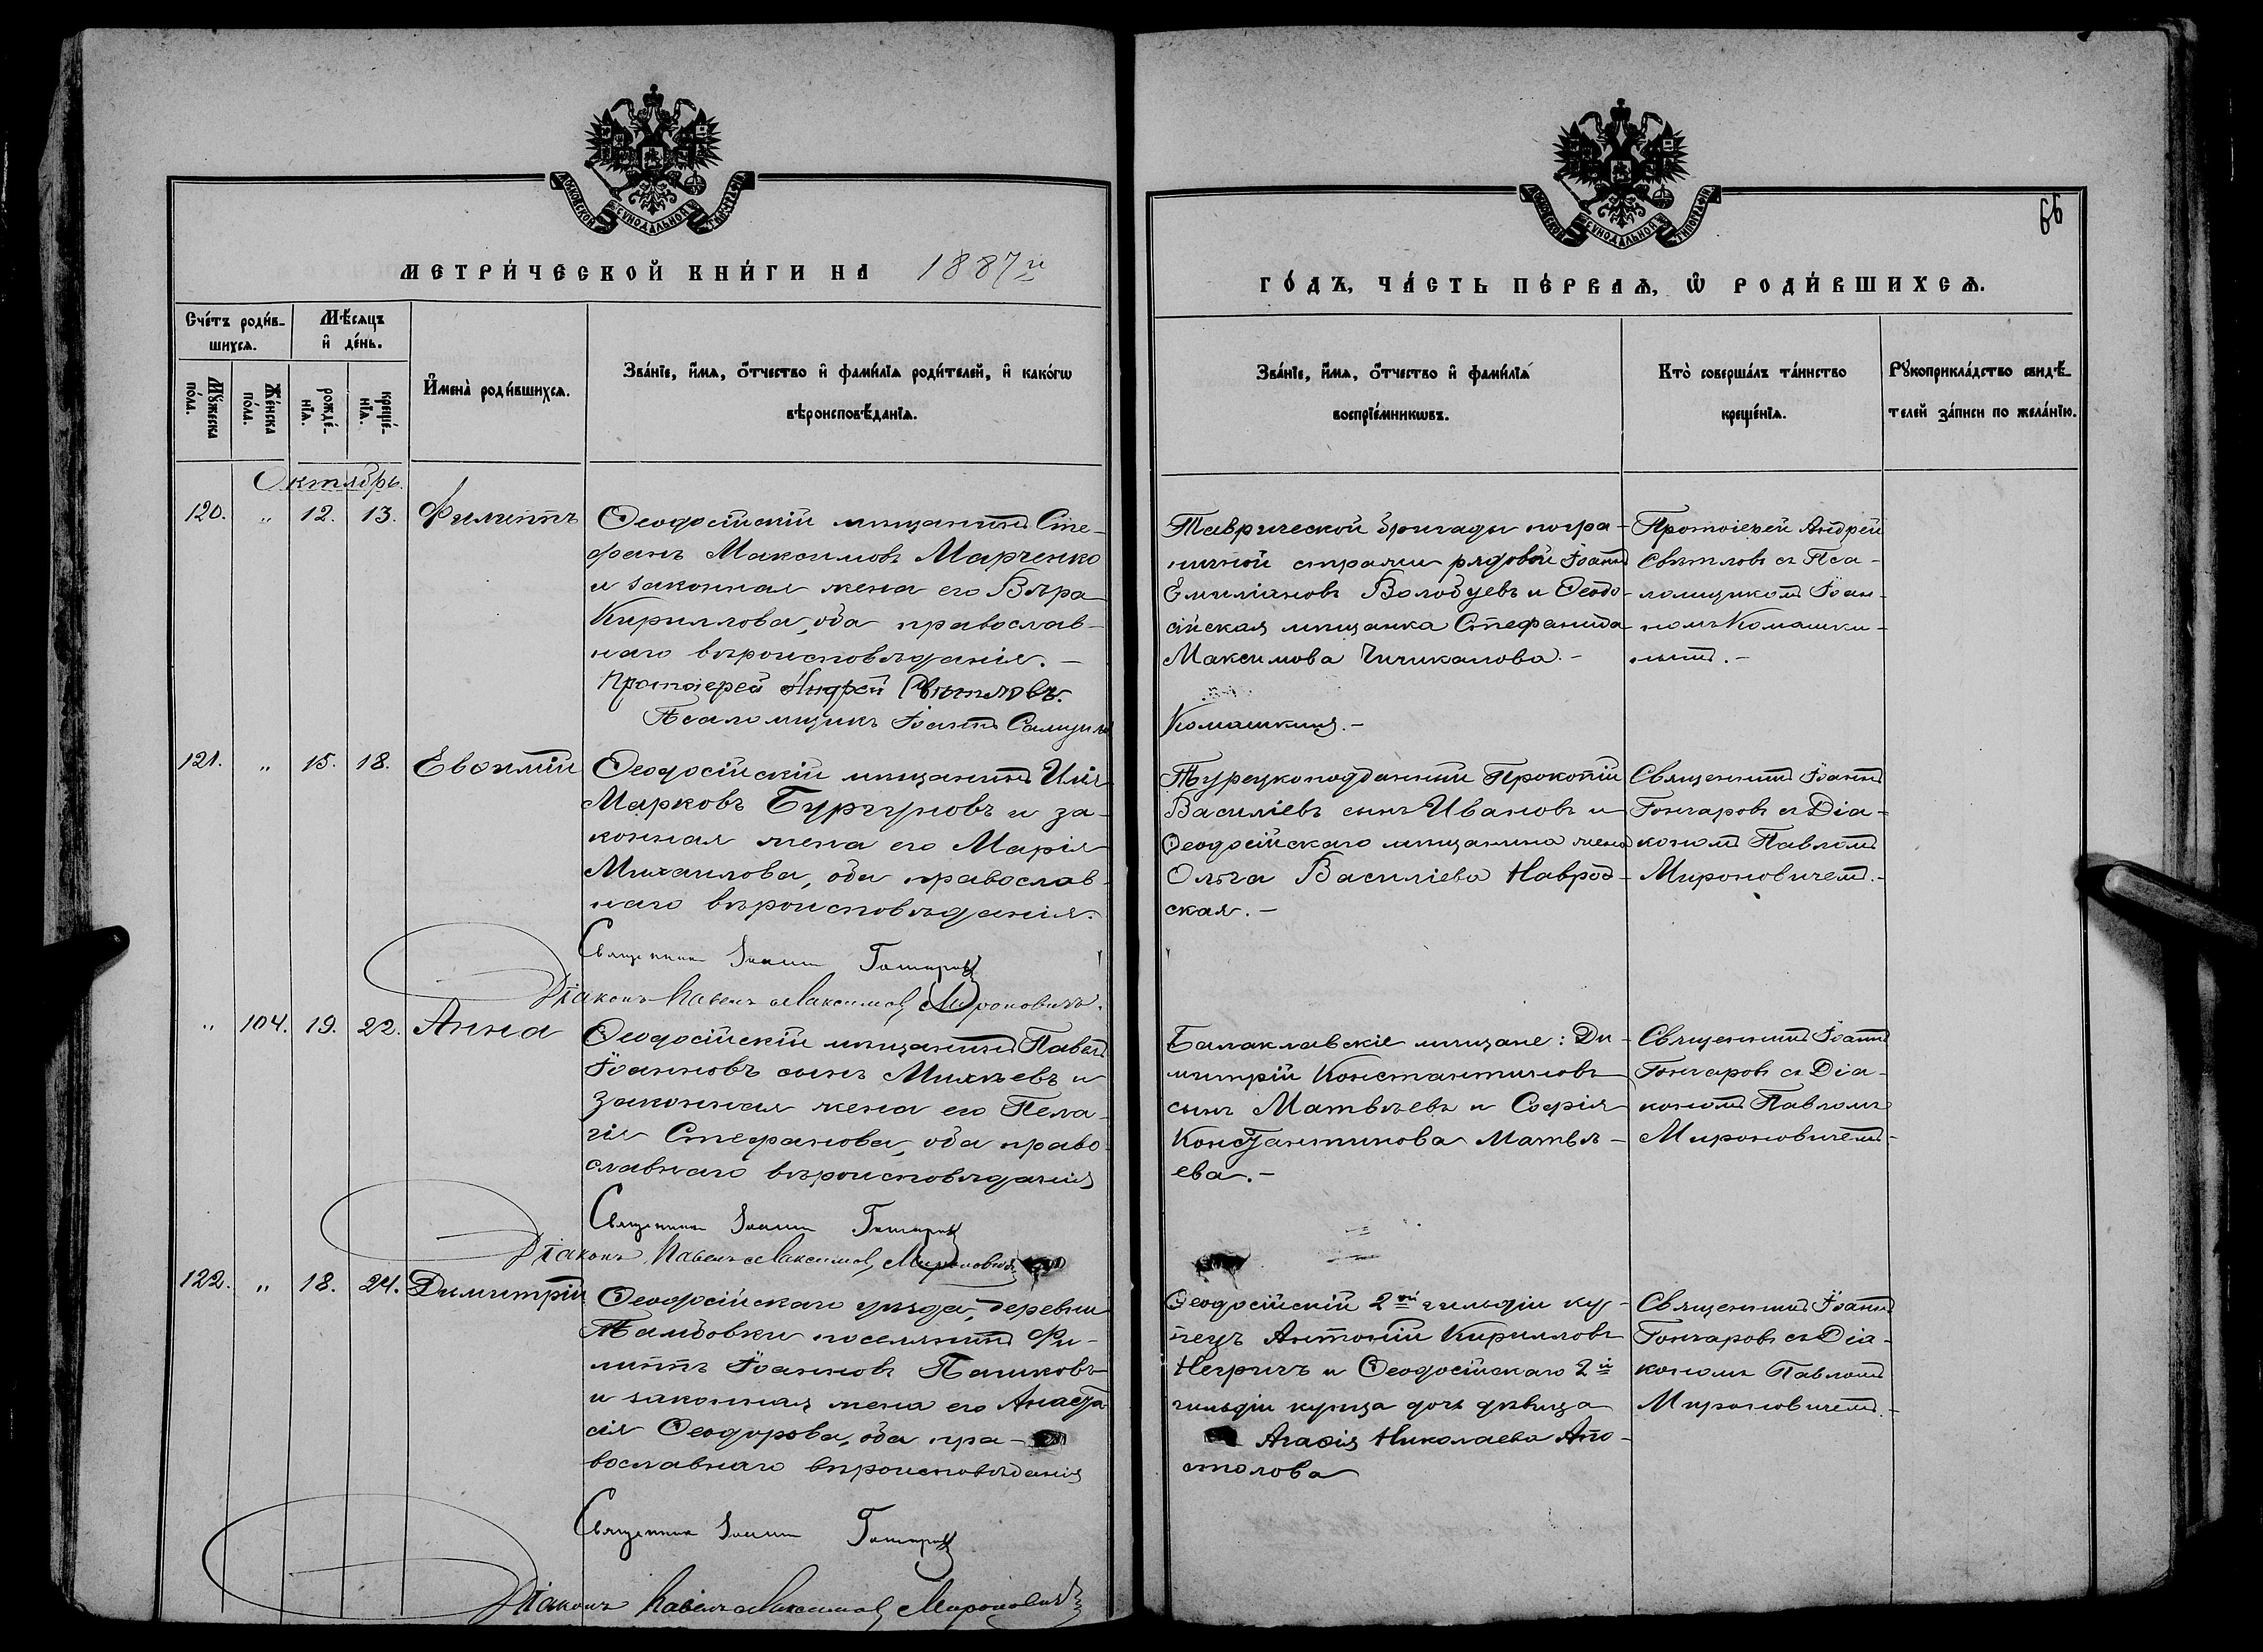 МОСКОВСКОЙ СѴНОДАЛЬНОЙ ТИПОГРАФІИ
МЕТРИ́ЧЕСКОЙ КНИ́ГИ НА 1887й
Сче́тъ роди́в-
шихсѧ.
Мѣ́сѧцъ
и҆ де́нь.
Мꙋ́жеска
по́ла.
Же́нска
по́ла.
рожде́-
нїѧ.
креще́-
нїѧ.
И҆мена̀ роди́вшихсѧ.
Зва́нїе, и҆́мѧ, ѻ҆́тчество и҆ фами́лїѧ роди́телей, и҆ како́гѡ
вѣроисповѣ́данїѧ.
Октябрь.
120. " 12. 13. Филиппъ
Ѳеодосійскій мѣщанинъ Сте-
фанъ Максимовъ Марченко
и законная жена его Вѣра
Кириллова, оба православ-
наго вѣроисповѣданія. –
Протоіерей Андрей Свѣтловъ.
Псаломщикъ Іоаннъ
121. " 15. 18. Евѳимій
Ѳеодосійскій мѣщанинъ Илія
Марковъ Бургуновъ и за-
конная жена его Марія
Михаилова, оба православ-
наго вѣроисповѣданія.
Священникъ Іоаннъ Гончаровъ
Діаконъ Павелъ Максимовъ Мироновичъ.
" 104. 19. 22. Анна
Ѳеодосійскій мѣщанинъ Павелъ
Іоанновъ сынъ Михѣевъ и
законная жена его Пела-
гія Стефанова, оба право-
славнаго вѣроисповѣданія
Священникъ Іоаннъ Гончаровъ
Діаконъ Павелъ Максимовъ Мироновичъ
122. " 18. 24. Димитрій
Ѳеодосійскаго уѣзда, деревни
Тамбовки поселянинъ Фи-
липпъ Іоанновъ Пашковъ
и законная жена его Анаста
сія Ѳеодорова, оба пра-
вославнаго вѣроисповѣданія
Священникъ Іоаннъ Гончаровъ
Діаконъ Павелъ Максимовъ Мироновичъ
МОСКОВСКОЙ СѴНОДАЛЬНОЙ ТИПОГРАФІИ
66
ГО́ДЪ, ЧА́СТЬ ПЕ́РВАѦ, Ѡ҆ РОДИ́ВШИХСѦ.
Зва́нїе, и҆́мѧ, ѻ҆́тчество и҆ фами́лїѧ
воспрїе́мникѡвъ.
Кто̀ соверша́лъ та́инство
креще́нїѧ.
Рꙋкоприкла́дство свидѣ́-
телей за́писи по жела́нїю.
Таврической бригады погра-
ничной стражи рядовой Іоаннъ
Емиліановъ Володуевъ и Ѳеодо-
сійская мѣщанка Стефанида
Максимова Чичикалова. –
Комашкинъ. –
Протоіерей Андрей
Свѣтловъ съ Пса-
ломщикомъ Іоан-
номъ Комашки-
нымъ. –
Турецкоподданный Прокопій
Василіевъ сынъ Ивановъ и
Ѳеодосійскаго мѣщанина жена
Ольга Василіева Наврод-
ская. –
Священникъ Іоаннъ
Гончаровъ съ Діа-
кономъ Павломъ
Мироновичемъ. –
Балаклавскіе мѣщане: Ди-
митрій Константиновъ
сынъ Матвѣевъ и Софія
Константинова Матвѣ-
ева. –
Священникъ Іоаннъ
Гончаровъ съ Діа-
кономъ Павломъ
Мироновичемъ –
Ѳеодосійскій 2ой гильдіи ку-
пецъ Антоній Кирилловъ
Негричъ и Ѳеодосійскаго 2й
гильдіи купца дочь дѣвица
Агаѳія Николаева Апо-
столова
Священникъ Іоаннъ
Гончаровъ съ Діа-
кономъ Павломъ
Мироновичемъ. –